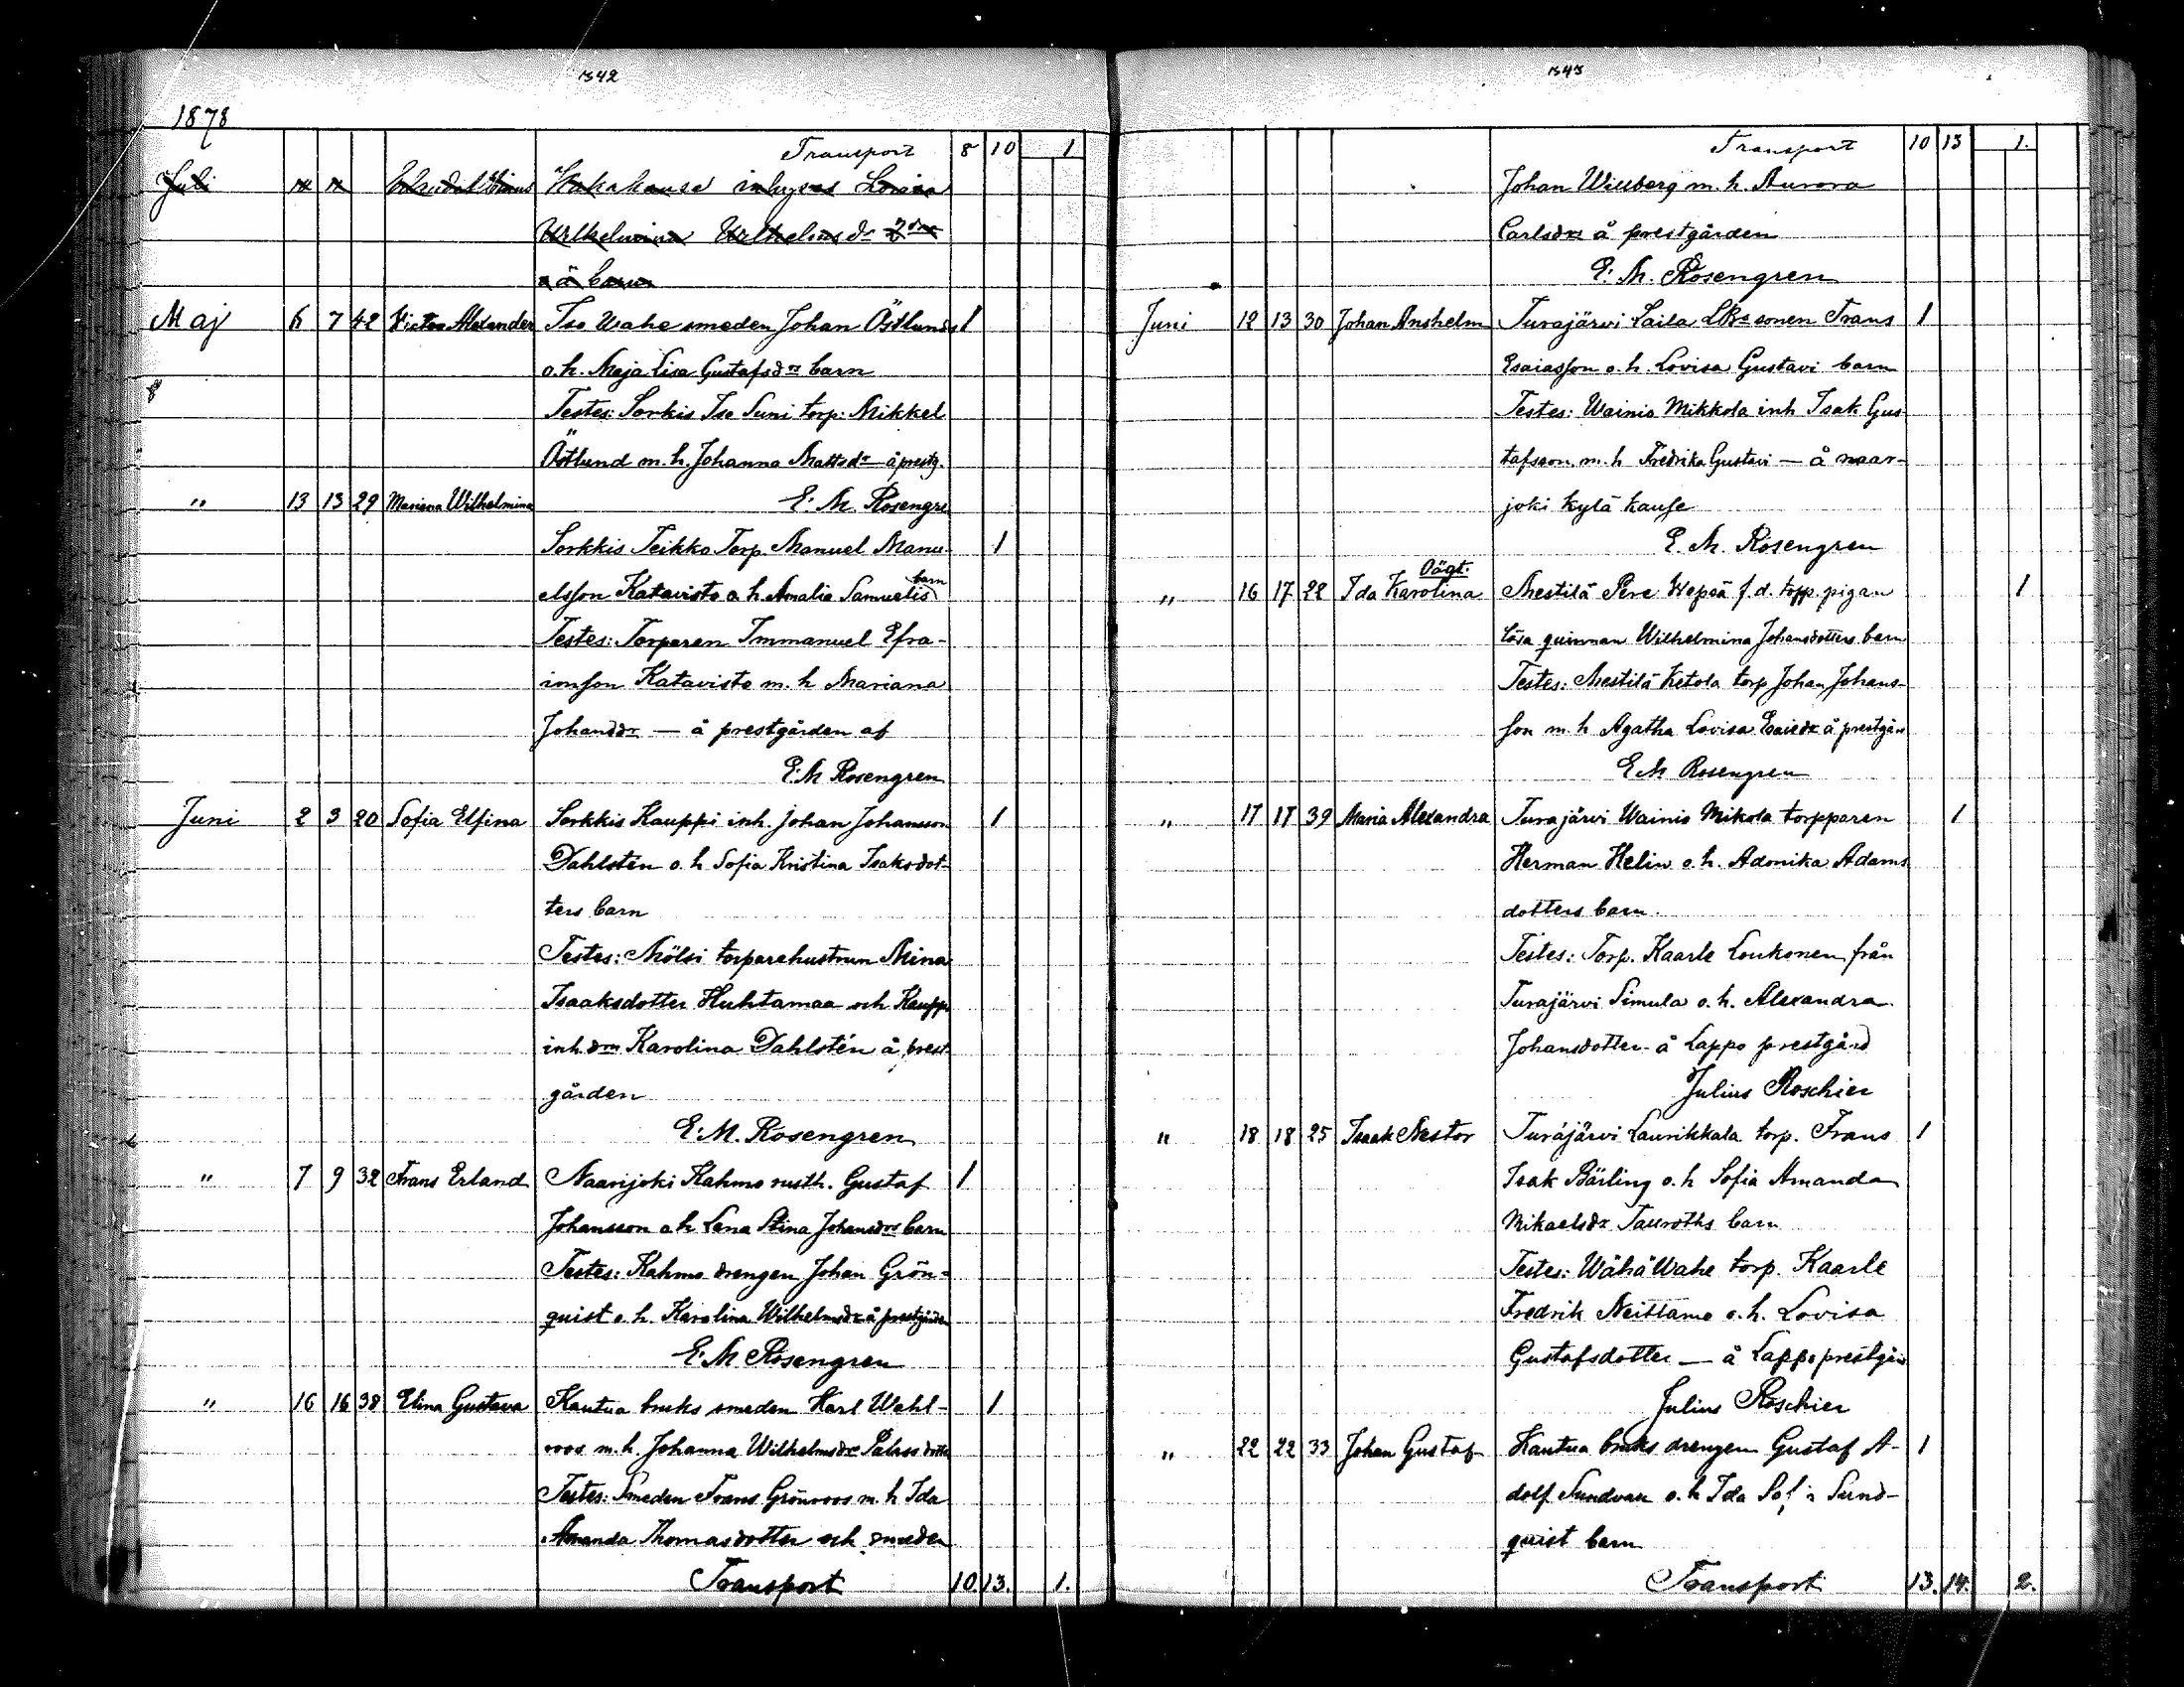 342
1878
Transport 8 10 1
Juli
Kakakause inhyses Lovisa
Wilhelmina Wilhelms dr
å barn
Maj 6 7 42 Victor Alexander Iso Wahe smeden Johan Östlunds 1
o.h. Maja Lisa Gustafsdrs barn
Testes: Sorkis Iso Suni torp: Mikkel
Östlund m.h. Johanna Mattsdr — å prestg.
" 13 13 29 Mariana Wilhelmina E. M. Rosengre
Sorkkis Teikko Torp Manuel Manu- 1
elsson Katavisto o h. Amalia Samuelis barn
Testes: Torparen Immanuel Efra-
imson Katavisto m. h Mariana
Johansdr — å prestgården af
E. M Rosengren
Juni 2 3 20 Sofia Elfina Sorkkis Kauppi inh. Johan Johansson 1
Dahlstén o. h Sofia Kristina Isaksdot-
ters barn
Testes: Mölsi torparehustrun Mina
Isaaksdotter Huhtamaa och Kaupp
inh. drn Karolina Dahlstén å prest
gården
E. M. Rosengren
" 7 9 32 Frans Erland Naarijoki Kahmo rusth. Gustaf 1
Johansson o h Lena Stina Johansdrs barn
Testes: Kahmo drengen Johan Grön-
quist o. h. Karolina Wilhelmsdr å prestgården
E. M Rosengren
" 16 16 38 Elina Gustava Kautua bruks smeden Karl Wahl- 1
roos m. h. Johanna Wilhelmsdr
Testes: Smeden Frans Grönroos m. h Ida
Amanda Thomasdotter och smeden
Transport 10 13. 1.
343
Transport 10 13 1.
Johan Willberg m. h. Aurora
Carlsdr å prestgården
E. M. Rosengren
Juni 12 13 30 Johan Anshelm Turajärvi Laila LBs sonen Frans 1
Esaiasson o. h. Lovisa Gustavi barn
Testes: Wainio Mikkola inh Isak Gus
tafsson m. h Fredrika Gustavi — å naar-
joki kylä kause
E. M. Rosengren
" 16 17 22 Ida Karolina Oägt. Mestilä Pere Wepsä f. d. torp. pigan 1
lösa quinnan Wilhelmina Johansdotters barn
Testes: Mestilä Ketola torp Johan Johans-
son m. h Agatha Lovisa Esaiedr å prestgår
E M Rosengren
" 17 17 39 Maria Alexandra Turajärvi Wainio Mikola torpparen 1
Herman Helin o. h. Adonika Adams
dotters barn.
Testes: Torp. Kaarle Loukonen från
Turajärvi Simula o. h. Alexandra
Johansdotter å Lappo prestgård
Julius Roschier
" 18 18 25 Isaak Nestor Turajärvi Laurikkala torp. Frans 1
Isak Bärling o. h Sofia Amanda
Mikaelsdr Tauroths barn
Testes: Wähä Wahe torp. Kaarle
Fredrik Neittamo o. h. Lovisa
Gustafsdotter — å Lappo prestgår
Julius Roschier
" 22 22 33 Johan Gustaf Kautua bruks drengen Gustaf A- 1
dolf Sundvall o. h Ida Sofia Sund-
quist barn
Transport 13. 14. 2.